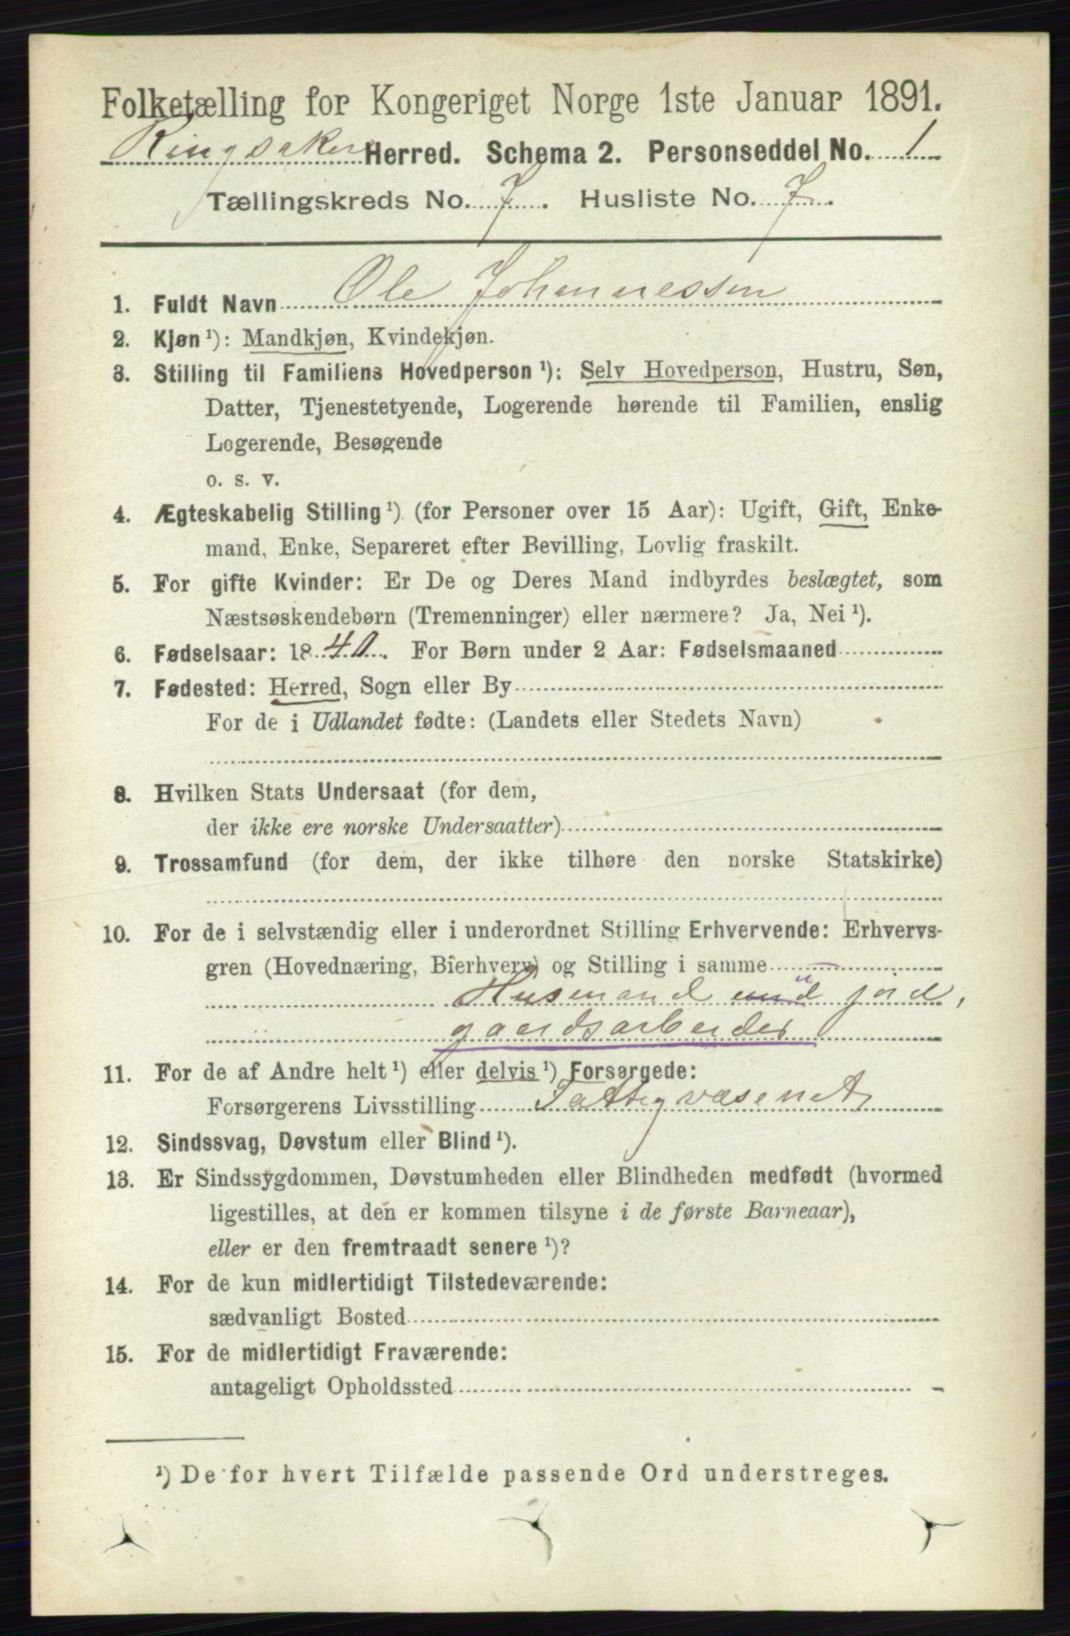 Folketælling for Kongeriget Norge 1ste Januar 1891.
Ringsaker Herred. Schema 2. Personseddel No. 1
Tællingskreds No. 7. Husliste No. 7.
1. Fuldt Navn Ole Johannessen
2. Kjøn ¹): Mandkjøn, Kvindekjøn.
3. Stilling til Familiens Hovedperson ¹): Selv Hovedperson, Hustru, Søn,
Datter, Tjenestetyende, Logerende hørende til Familien, enslig
Logerende, Besøgende
o. s. v.
4. Ægteskabelig Stilling ¹) (for Personer over 15 Aar): Ugift, Gift, Enke-
mand, Enke, Separeret efter Bevilling, Lovlig fraskilt.
5. For gifte Kvinder: Er De og Deres Mand indbyrdes beslægtet, som
Næstsøskendebørn (Tremenninger) eller nærmere? Ja, Nei ¹).
6. Fødselsaar: 1840. For Børn under 2 Aar: Fødselsmaaned
7. Fødested: Herred, Sogn eller By
For de i Udlandet fødte: (Landets eller Stedets Navn)
8. Hvilken Stats Undersaat (for dem,
der ikke ere norske Undersaatter)
9. Trossamfund (for dem, der ikke tilhøre den norske Statskirke)
10. For de i selvstændig eller i underordnet Stilling Erhvervende: Erhvervs-
gren (Hovednæring, Bierhverv) og Stilling i samme
Husmand jord,
gaardsarbeider
11. For de af Andre helt ¹) eller delvis ¹) Forsørgede:
Forsørgerens Livsstilling Fattigvæsenet
12. Sindssvag, Døvstum eller Blind ¹).
13. Er Sindssygdommen, Døvstumheden eller Blindheden medfødt (hvormed
ligestilles, at den er kommen tilsyne i de første Barneaar),
eller er den fremtraadt senere ¹)?
14. For de kun midlertidigt Tilstedeværende:
sædvanligt Bosted
15. For de midlertidigt Fraværende:
antageligt Opholdssted
¹) De for hvert Tilfælde passende Ord understreges.